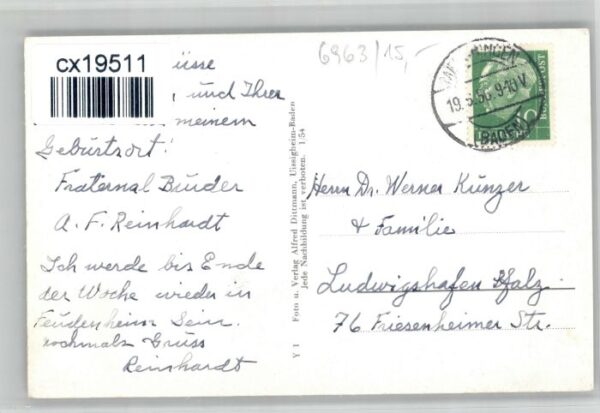 cx19511
6963/15,-
üsse
, und Ihrer
meinem
Geburtsort!
Fraternal Bürder
A. F. Reinhardt
Ich werde bis Ende
der Woche wieder in
Feudenheim Sein.
nochmals Gruss
Reinhardt
Y I Foto u. Verlag Alfred Dittmann, Uissigheim-Baden
Jede Nachbildung ist verboten. 1/54
INGEN
19.5.56.9-10V
(BADEN)
Herrn Dr. Werner Künzer
& Familie
Ludwigshafen Pfalz.
76 Friesenheimer Str.